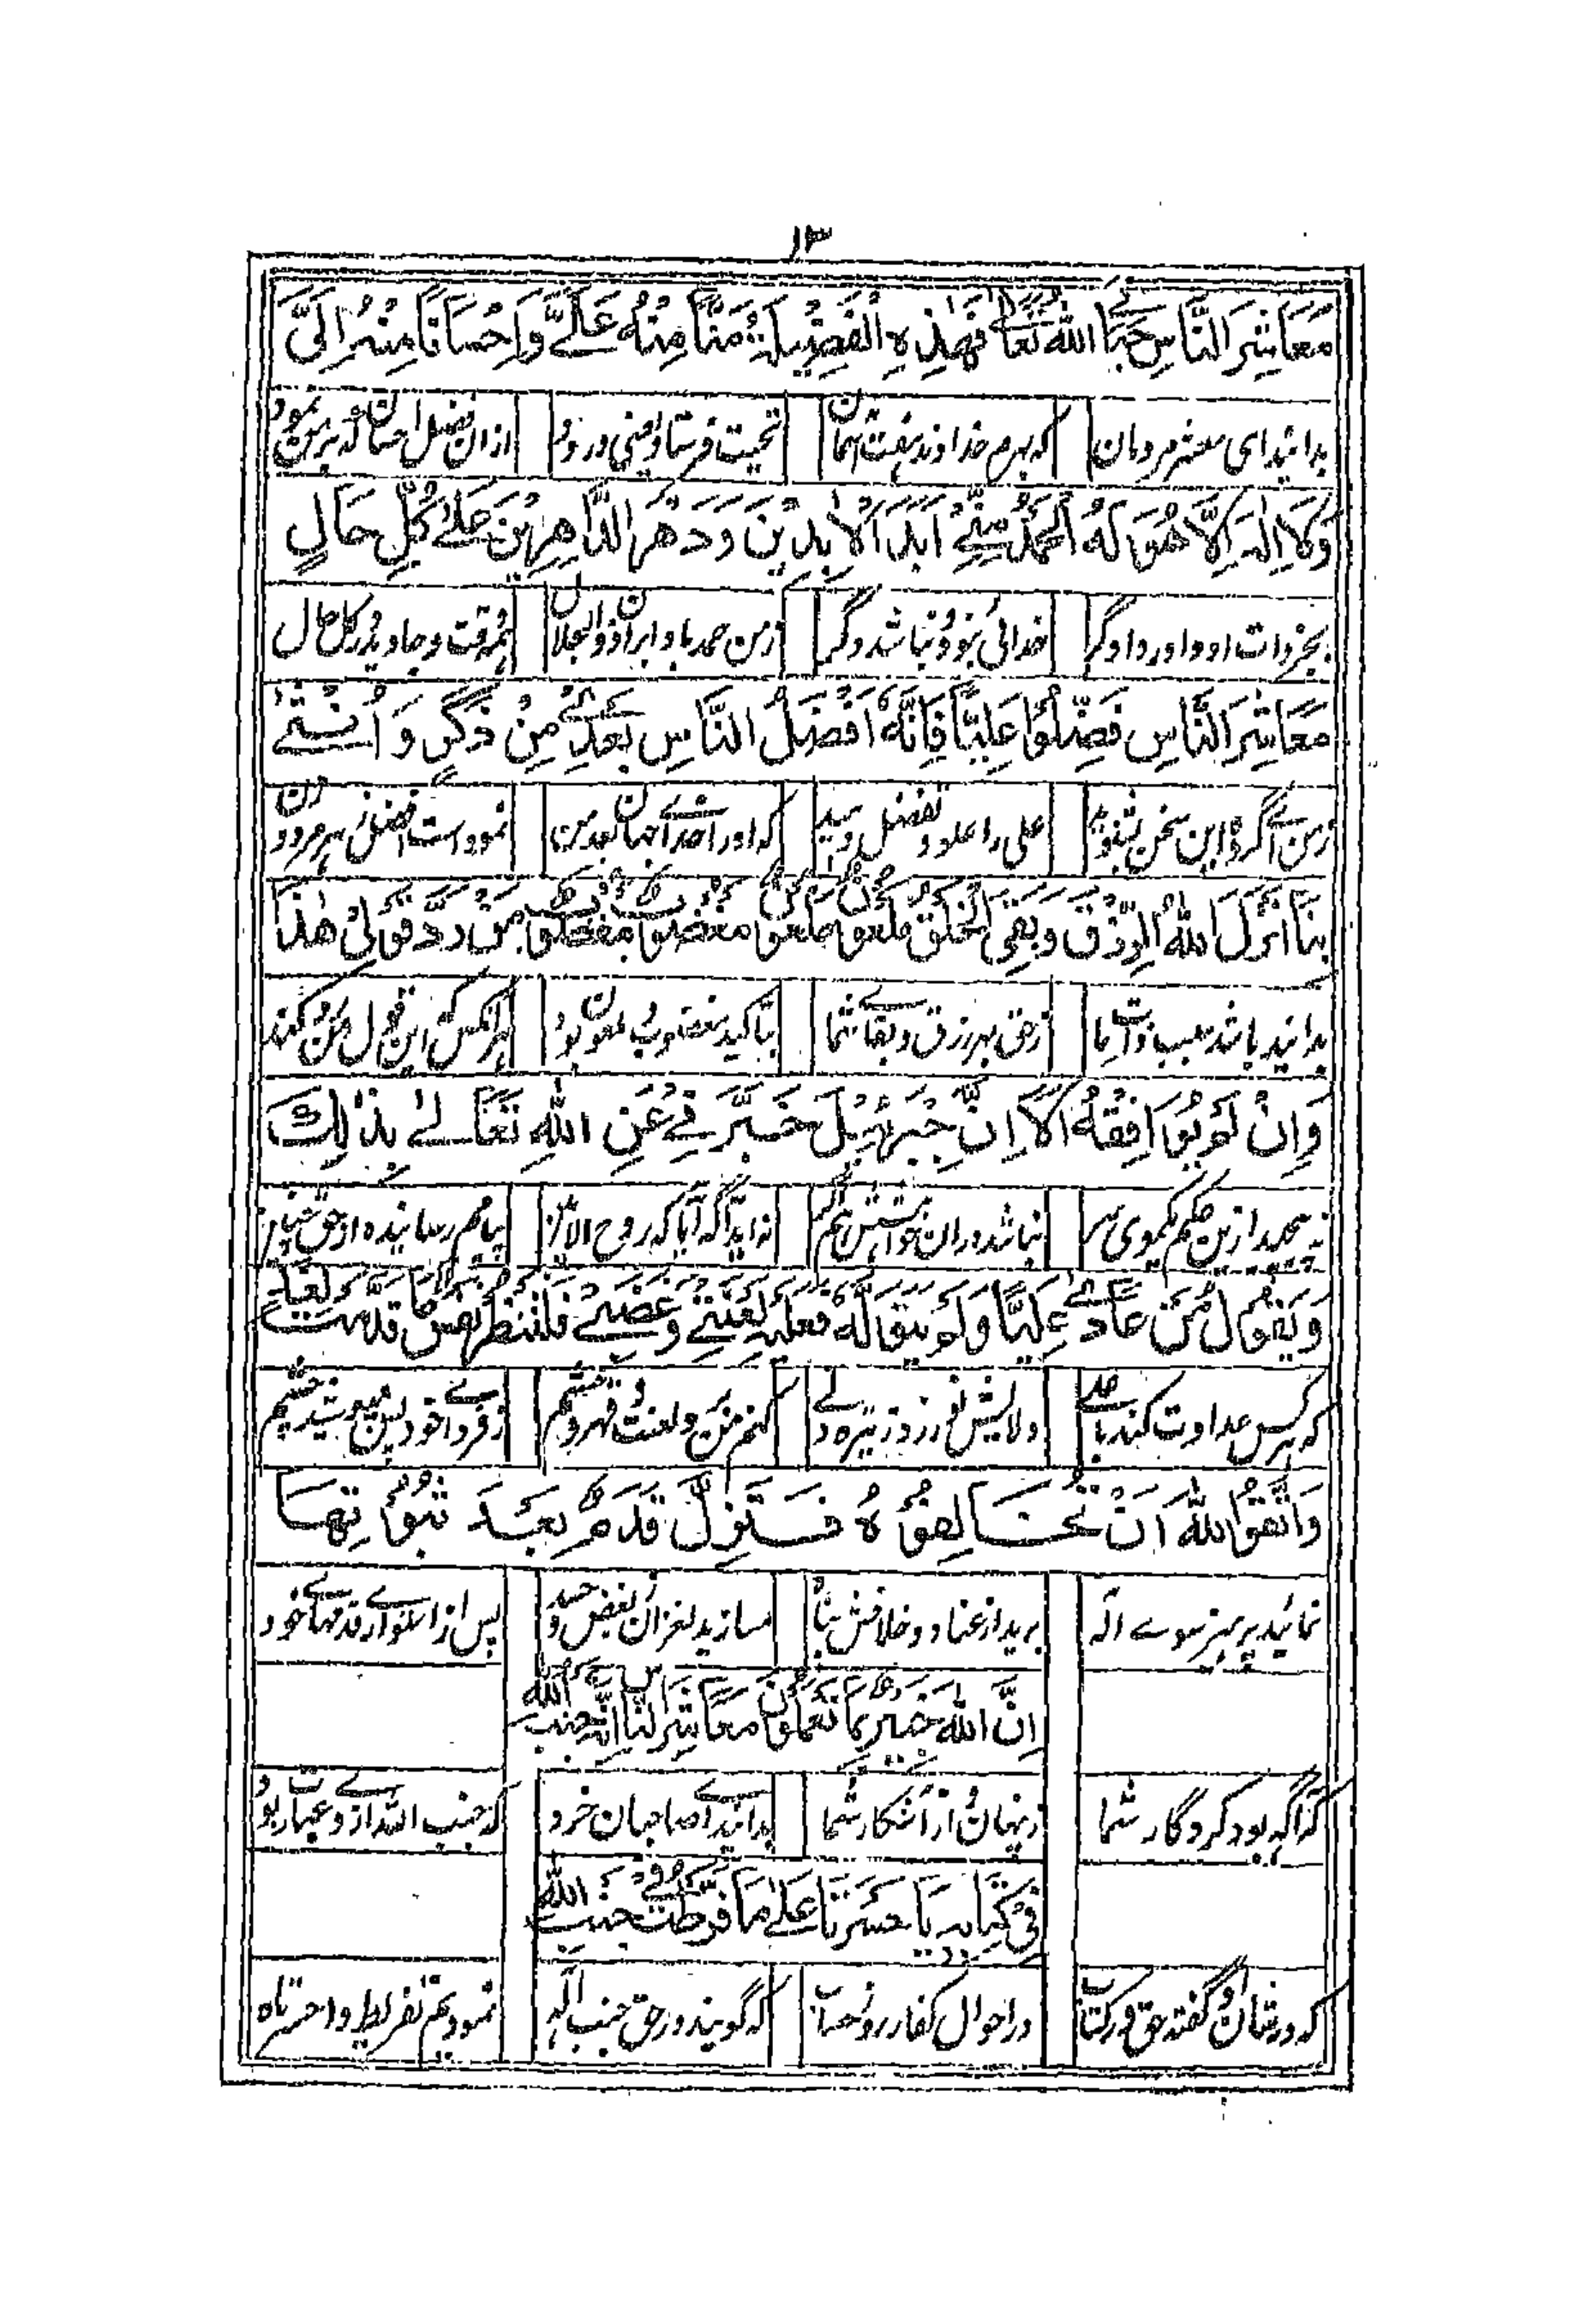 ١٣
مَعَاشِرَ النَّاسِ حَبَانِي اللهُ تَعَالٰى فَهٰذِهِ الْفَضِيلَةُ مَنًّا مِنْهُ عَلَيَّ وَاِحْسَانًا مِنْهُ اِلَيَّ
بدانید ای معشر مردمان که بهرم خداوند هفت آسمان تحیت فرستاد یعنی درود از ان فضل احسان که بر من نمود
وَلَا اِلٰهَ اِلَّا هُوَ لَهُ الْحَمْدُ مِنِّي اَبَدَ الْاٰبِدِيْنَ وَدَهْرَ الدَّاهِرِيْنَ عَلٰى كُلِّ حَالٍ
بجز ذات او داور دادگر خدائی نبود و نباشد دگر زمن حمد باد ابر آن ذوالجلال بهر وقت و جاوید در کل حال
مَعَاشِرَ النَّاسِ فَضِّلُوْا عَلِيًّا فَاِنَّهُ اَفْضَلُ النَّاسِ بَعْدِيْ مِنْ ذَكَرٍ وَاُنْثٰى
زمن اے گروه این سخن بشنوید علی را علو و تفضل دهید که او را خدائے جهان بعد من نموده است افضل ز هر مرد و زن
بِنَا اَنْزَلَ اللهُ الرِّزْقَ وَبَقِيَ الْخَلْقُ مَلْعُونٌ مَلْعُونٌ مَغْضُوبٌ مَغْضُوبٌ مَنْ رَدَّ قَوْلِيْ هٰذَا
بدانید باشد سبب ذات ما زحق بهر رزق و بقائے شما بتاکید مغضوب و ملعون بود هر انکس که این قول من رد کند
وَاِنْ لَمْ يُوَافِقْهُ اَلَا اِنَّ جِبْرَئِيْلَ خَبَّرَنِيْ عَنِ اللهِ تَعَالٰى بِذٰلِكَ
نه پیچید ازین حکم یکموی سر نباشد در ان خواهشش هم اگر نه اید آگه آیا که روح الامین پیامم رسانیده از حق چنین
وَيَقُوْلُ مَنْ عَادٰى عَلِيًّا وَلَمْ يَتَوَلَّهُ فَعَلَيْهِ لَعْنَتِيْ وَغَضَبِيْ فَلْتَنْظُرْ نَفْسٌ مَا قَدَّمَتْ لِغَدٍ
که هر کس عداوت کند با علے ولایش نورزد ز تیره دلے کنم من برو لعنت و قهر و خشم ز فردائے خود پس مپوشید چشم
وَاتَّقُوا اللهَ اَنْ تُخَالِفُوْهُ فَتَزِلَّ قَدَمٌ بَعْدَ ثُبُوْتِهَا
نمائید پرهیز سوے اله برید از عناد و خلافش پناه مسازید لغزان ز بغض و حسد پس از استواری قدمهائے خود
اِنَّ اللهَ خَبِيْرٌ بِمَا تَعْمَلُوْنَ مَعَاشِرَ النَّاسِ اِنَّهُ جَنْبُ اللهِ
که آگه بود کردگار شما زپنهان و از آشکار شما بدانید اے صاحبان خرد که جنب الله از وے عبارت بود
فِيْ كِتَابِهِ يَا حَسْرَتَا عَلٰى مَا فَرَّطْتُ فِيْ جَنْبِ اللهِ
که در شان او گفته حق در کتاب در احوال کفار روز حساب که گویند در حق جنب اله نمودیم تفریط وا حسرتاه